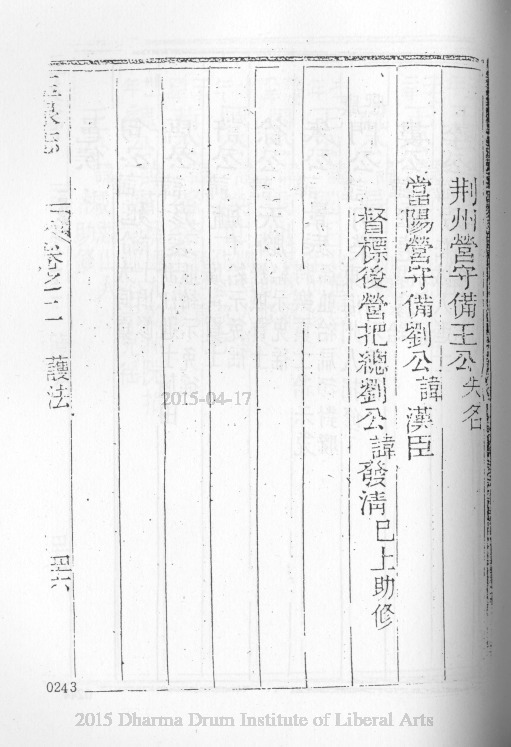 荆州營守備王公失名
當陽營守備劉公諱漢臣
督標後營把總劉公諱發清巳上助修
卷之二 護法 四六
2015-04-17
0243
2015 Dharma Drum Institute of Liberal Arts